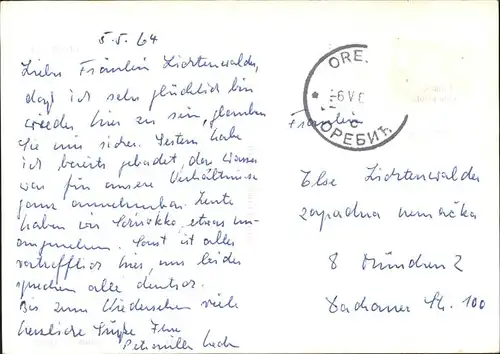 5.5.64
Liebes Fräulein Lichtenwalder,
daß ich sehr glücklich bin
wieder hier zu sein, glauben
Sie mir sicher. Gestern habe
ich bereits gebadet, das Wasser
war für unsere Verhältnisse
ganz annehmbar. Heute
haben wir Schirokko, etwas un-
angenehm. Sonst ist alles
vortrefflich hier, nur leider
sprechen alle deutsch.
Bis zum Wiedersehen viele
herzliche Grüße Ihre
ORE.
6 V 6
c
ОРЕБИЋ
Fräulein
Else Lichtenwalder
zapadna nemačka
8 München 2
Dachauer Str. 100